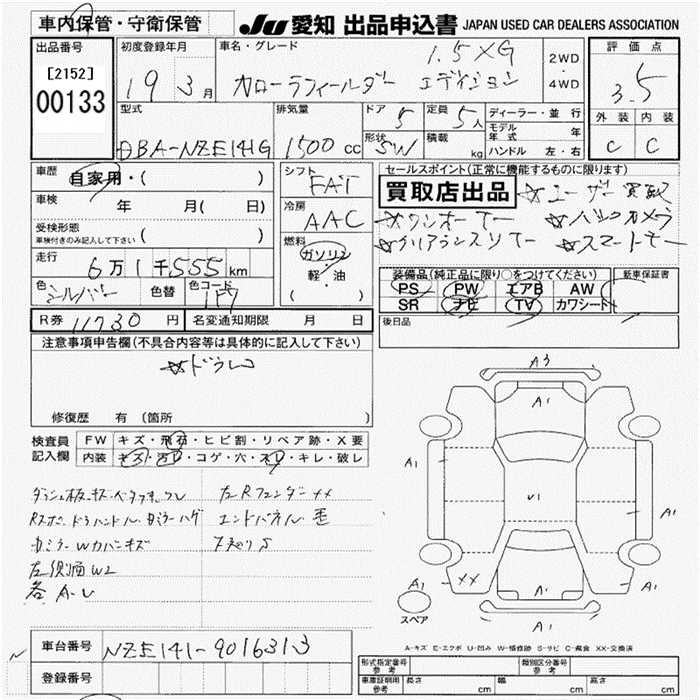 車内保管・守衛保管
JU 愛知 出品申込書 JAPAN USED CAR DEALERS ASSOCIATION
出品番号
[2152]
00133
初度登録年月
19 3月
車名・グレード
1.5XG
カローラフィールダー エディション
2WD
・
4WD
評価点
3.5
外装 内装
C C
型式
DBA-NZE141G
排気量
1500cc
ドア
5
定員
5人
形状
SW
積載
kg
ディーラー・並行
モデル年式 年
ハンドル 左・右
車歴
自家用・( )
車検
年 月( 日)
受検形態
車検付きのみ記入して下さい ( )
走行
6万1千555km
色
シルバー
色替
色コード
1F7
シフト
FAT
冷房
AAC
燃料
ガソリン
軽・油
( )
R券 11730円
名変通知期限 月 日
セールスポイント(正常に機能するものに限ります)
買取店出品
☆ユーザー買取
☆ワンオーナー ☆バックカメラ
☆クリアランスソナー ☆スマートキー
装備品(純正品に限り○をつけてください)
PS PW エアB AW
SR ナビ TV カワシート
新車保証書
後日品
注意事項申告欄(不具合内容等は具体的に記入して下さい)
☆ドラレコ
修復歴 有(箇所
検査員
記入欄
FW キズ・飛石・ヒビ割・リペア跡・X要
内装 キズ・汚レ・コゲ・穴・スレ・キレ・破レ
左RフェンダーXX
エンドパネル歪
左側面W2
各A・U
A3
A1
A1
A1
U1
A1
A1
XX
A1
A1
スペア
A-キズ E-エクボ U-凹み W-補修跡 S-サビ C-腐食 XX-交換済
車台番号 NZE141-9016313
登録番号
型式指定番号
参考
類別区分番号
参考
車庫証明用
参考
長さ cm 幅 cm 高さ cm